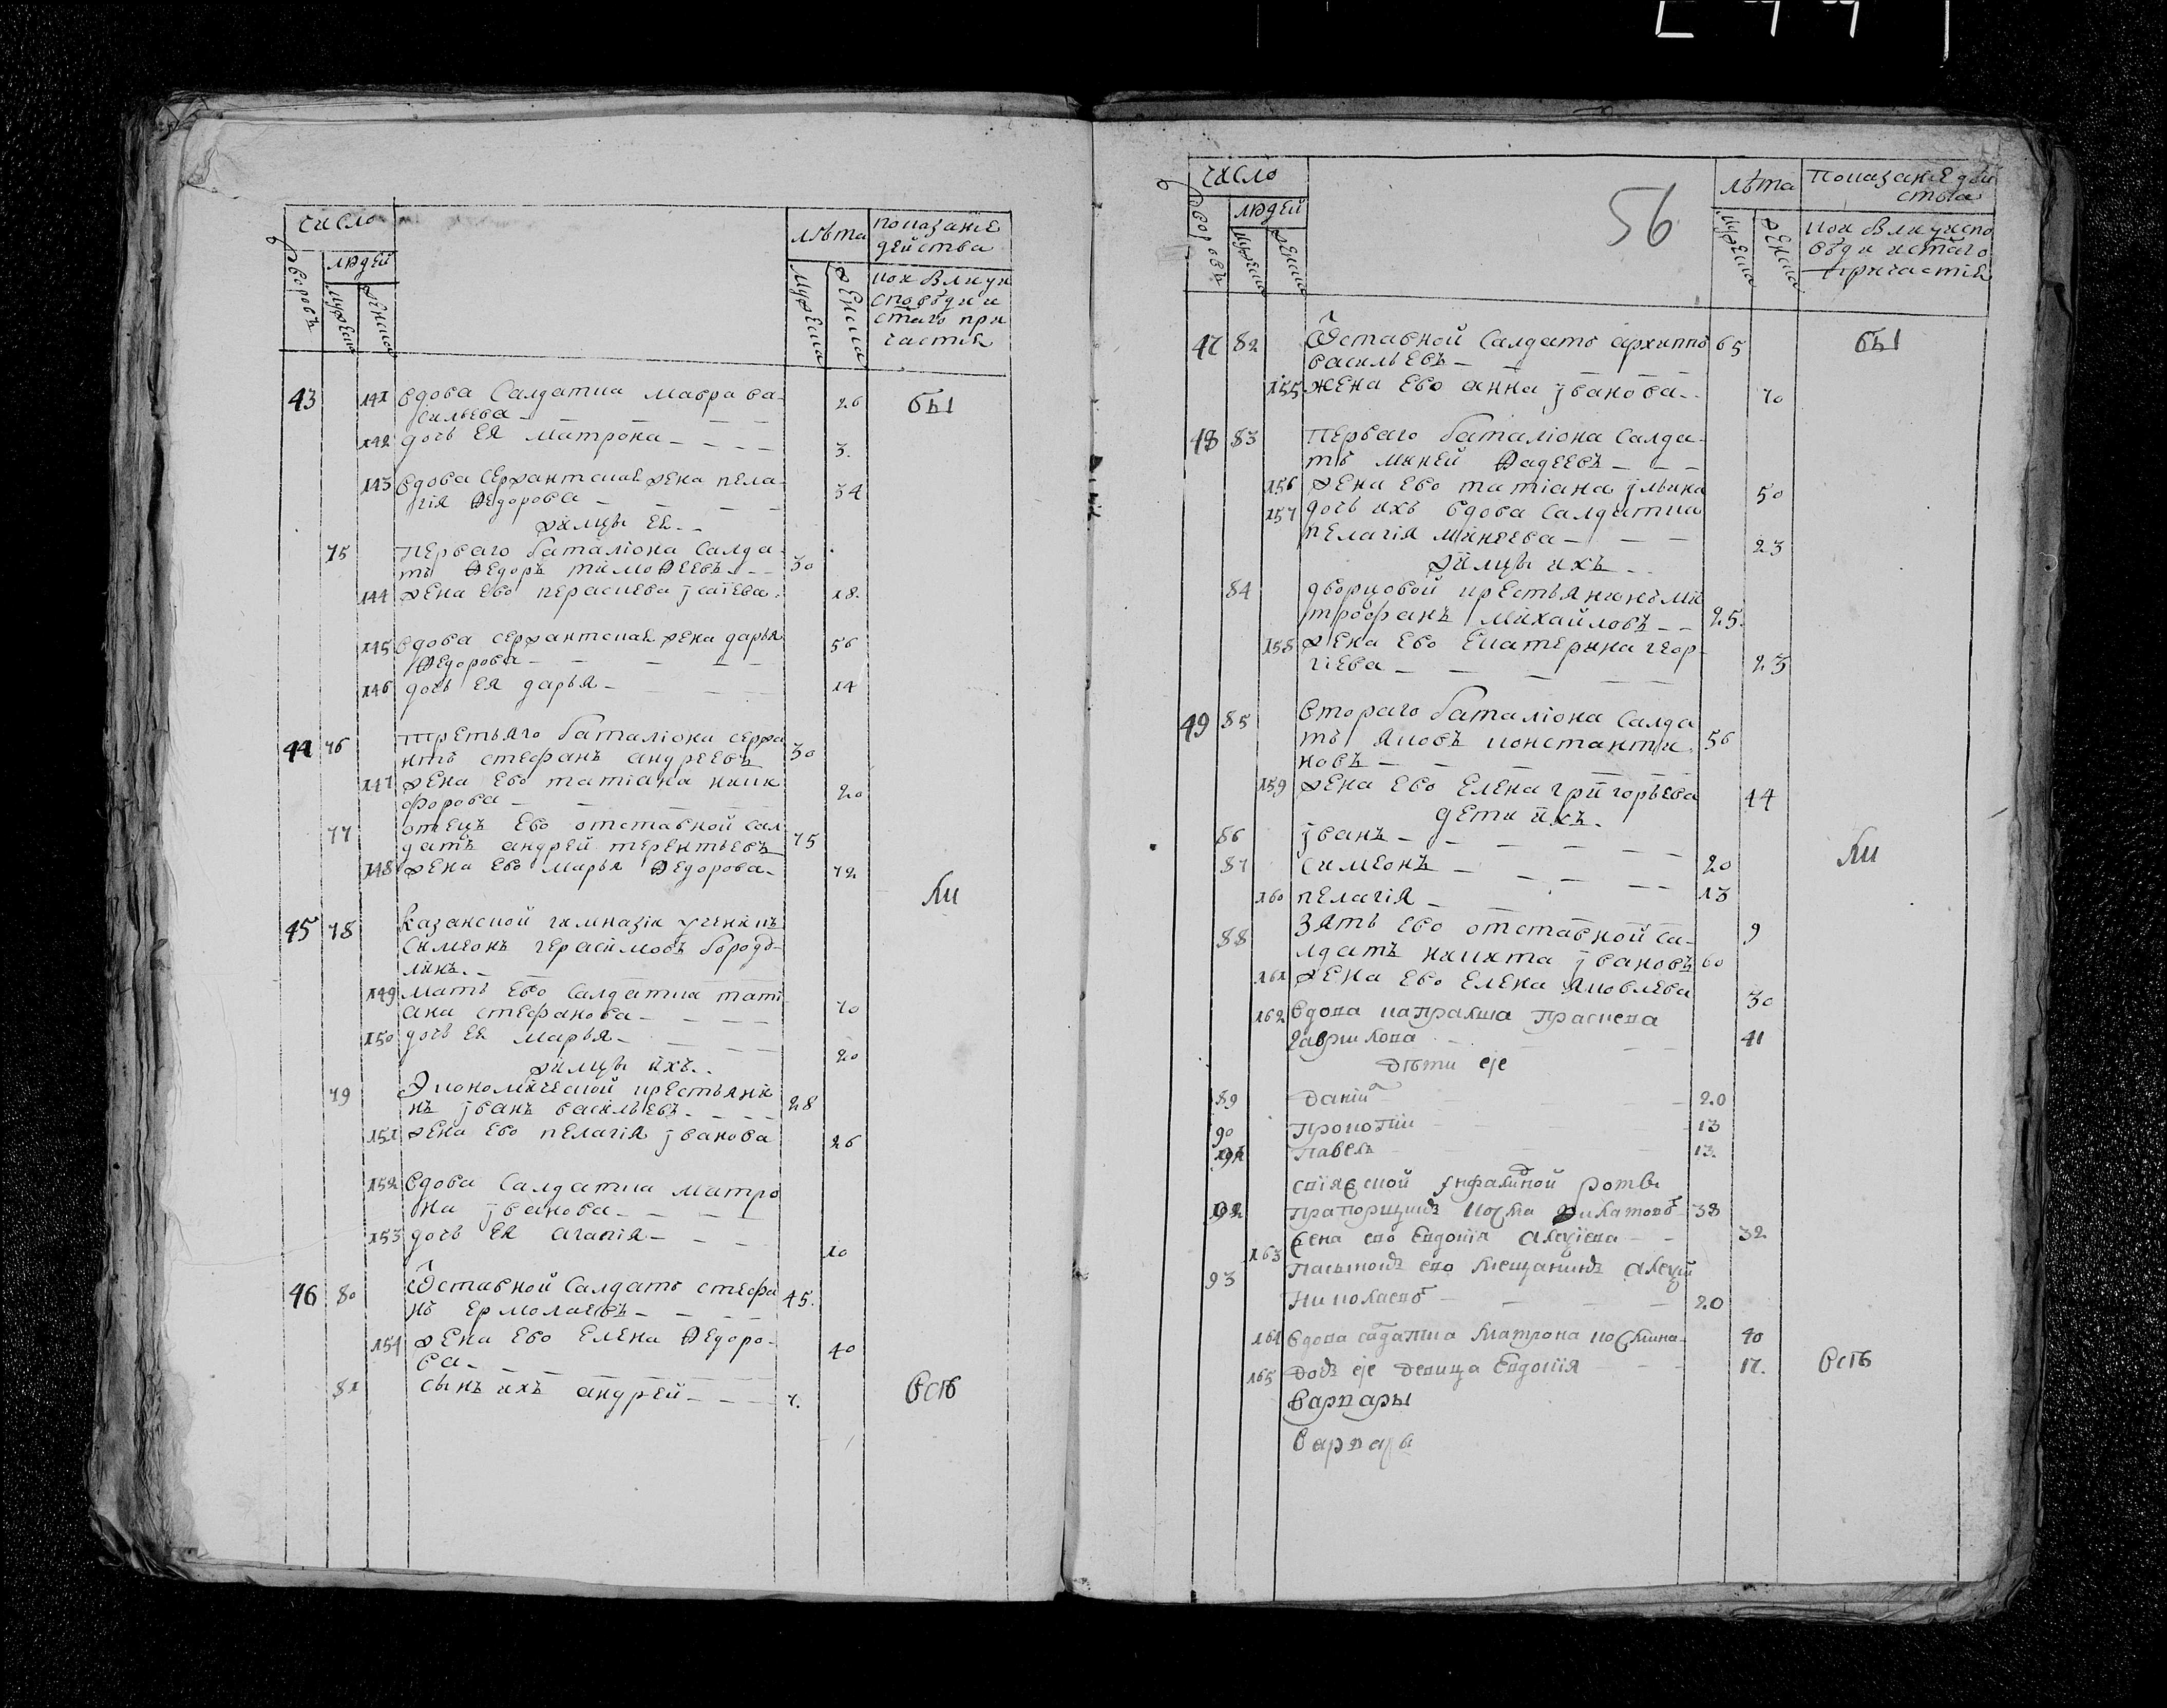 число
дворовъ
людей
мужеска
женска
лѣта
мужеска
женска
показание
действа
кои были у и
сповѣди и
стаго при
частия
43 141 вдова Салдатка мавра ва-
сильева 26 бы
142 дочь Ея матрона 3.
143 вдова сержантская жена пела-
гия Федорова 34
жилцы Ея
75 перваго баталиона Салда-
тъ Федоръ тимоФеевъ 30
144 жена Ево пераскева јсаиева 18.
145 вдова сержантская жена дарья
Федорова 56
146 дочь Ея дарья 14
44 76 третьяго баталиона сержа
нтъ стефанъ андреевъ 30
147 жена Ево татиана ники
форова 20
77 отецъ Ево отставной сал
датъ андрей терентьевъ 75
148 жена Ево марья Федорова 72
ли
45 78 казанской гимназии ученикъ
Симеонъ герасимовъ бородо-
линъ.
149 мать Ево Салдатка тати
ана стефанова 70
150 дочь Ея марья 20
жилцы ихъ
79 Экономической крестьяни
нъ јванъ васильевъ 28
151 жена Ево пелагия јванова 26
152 вдова Салдатка матро
на јванова
153 дочь Ея агапия 10
46 80 Ѿставной Салдатъ стефа
нъ Ермолаевъ 45.
154 жена Ево Елена Федоро-
ва 40
81 сынъ ихъ андрей 7. всѣ
56
число
дворовъ
людей
мужеска
женска
лѣта
мужеска
женска
Показание дей
ства
кои были у испо
вѣди и стаго
причастия
47 82 Ѿставной Салдатъ архиппъ 65 бы
васильевъ
155 жена Ево анна јванова 70
48 83 перваго баталиона Салда-
тъ миней Фадеевъ
156 жена Ево татиана јльина 50
157 дочь ихъ вдова Салдатка
пелагия минеева 23
жилцы ихъ
84 дворцовой крестьянинъ ми
трофанъ михайловъ 25.
158 жена Ево Екатерина геор-
гиева 23
49 85 втораго баталиона Салда
тъ яковъ константи 56
новъ
159 жена Ево Елена григорьева 44
дети ихъ.
86 јванъ 20
87 Симеонъ 13
ли
160 пелагия 9
88 Зять Ево отставной са-
лдатъ никита јвановъ 60
161 жена Ево Елена яковлева 30
162 вдова капралша праскева
гаврилова 41
дѣти еје
89 данiи 20
90 прокопiи 13
91 павелъ 13.
свiяжской инфалидной роты
92 прапорщикъ козма Филатовъ 38
163 жена ево Евдокiя алеѯiева 32
93 пасынокъ ево мещанинъ алеѯiй
николаевъ 20
164 вдова салдатка матрона козмина 40
165 дочь еје девица Евдокiя 17. всѣ
варвары
варвары